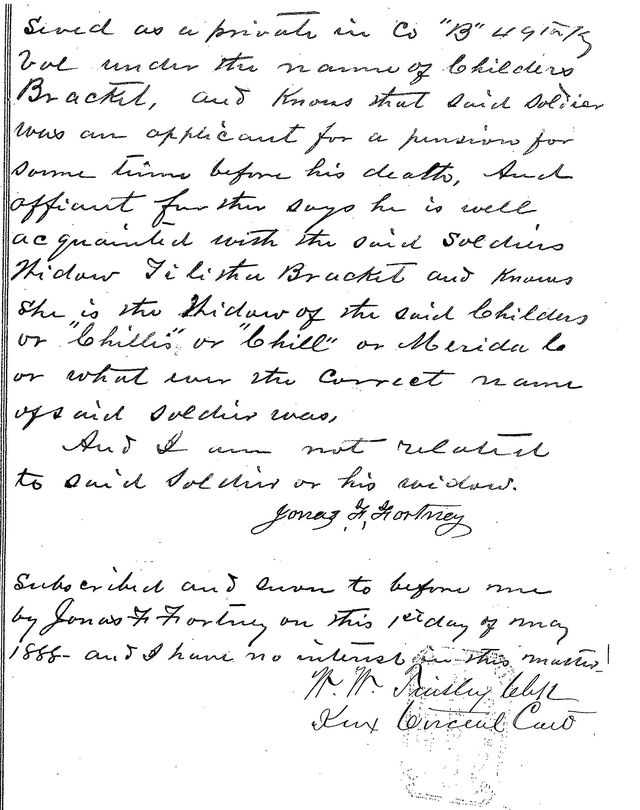 Served as a private in Co "B" 49th Ky
Vol under the name of Childers
Bracket, and Knows that said soldier
was an applicant for a pension for
some time before his death, And
affiant further says he is well
acquainted with the said Soldiers
Widow Tilitha Bracket and Knows
She is the Widow of the said Childers
or "Chillis" or "Chill" or Merida C
or what ever the Correct name
of said soldier was,
And I am not related
to said Soldier or his widow.
Jonas F. Fortney
Subscribed and sworn to before me
by Jonas F Fortney on this 1st day of May
1888 - and I have no interest in this matter
W. W. Tinsley Clk
Knx Circuit Court